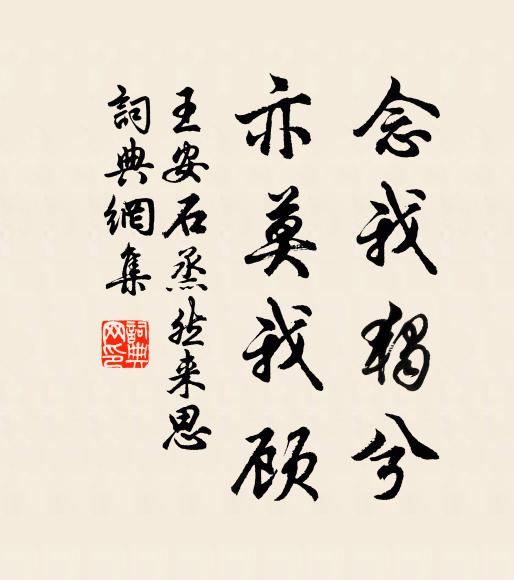 念我独兮
亦莫我顾
王安石烝然来思
詞典網集
詞典
网印